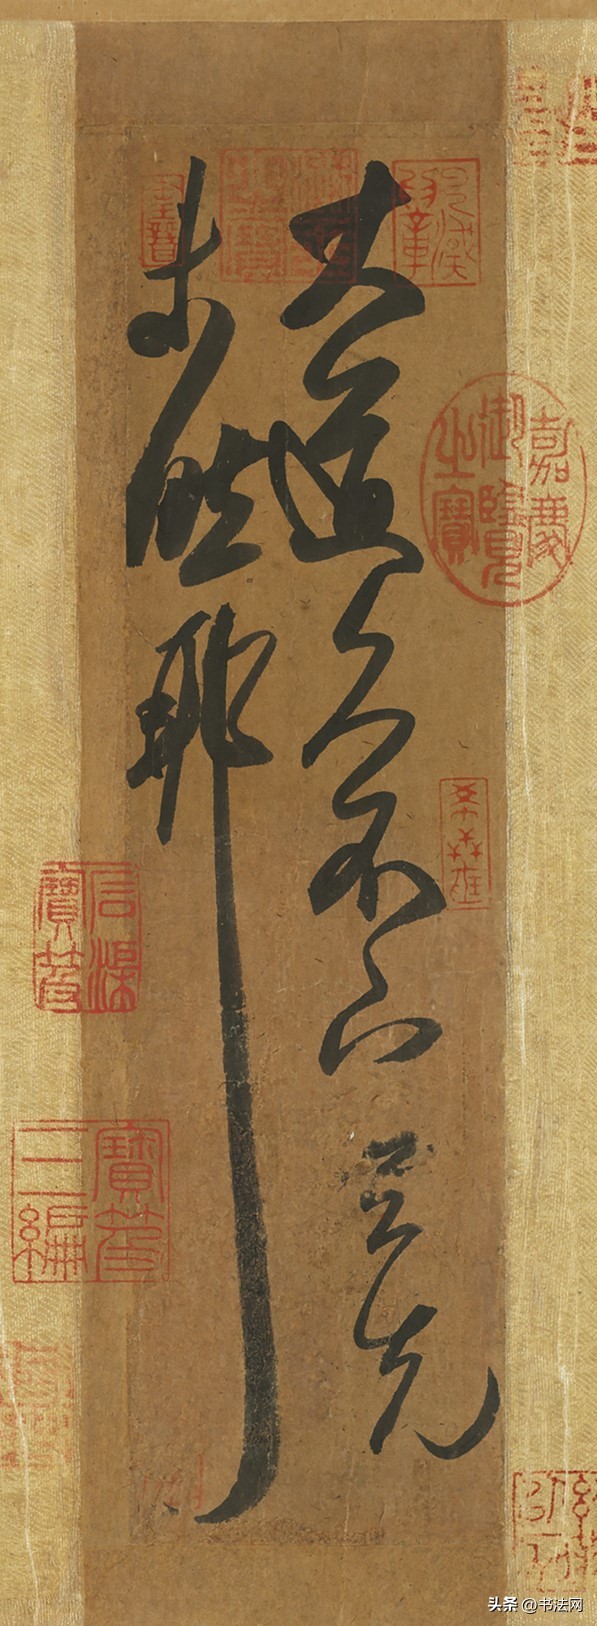 大道久不下与先
未然耶
嘉慶御覽之寶
寶笈三編
头条 @书法网